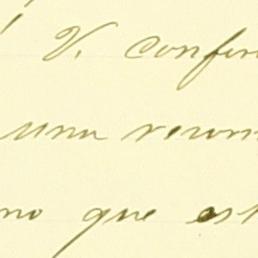 V. confir
una recom
no que est